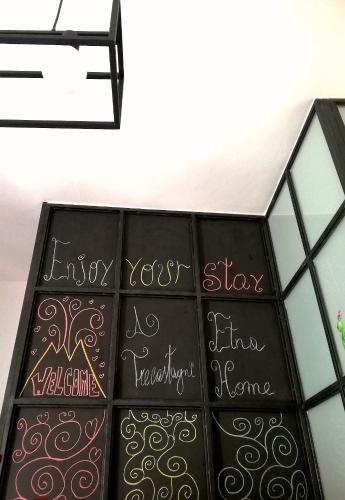 Enjoy your stay
WELCOME
A Etna
Trecastagni Home